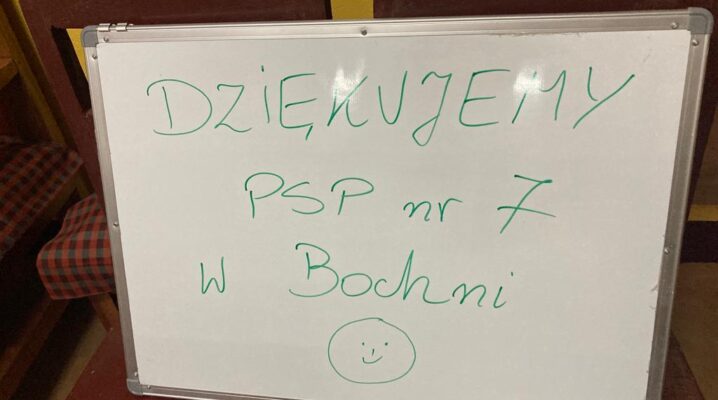 DZIĘKUJEMY
PSP nr 7
w Bochni